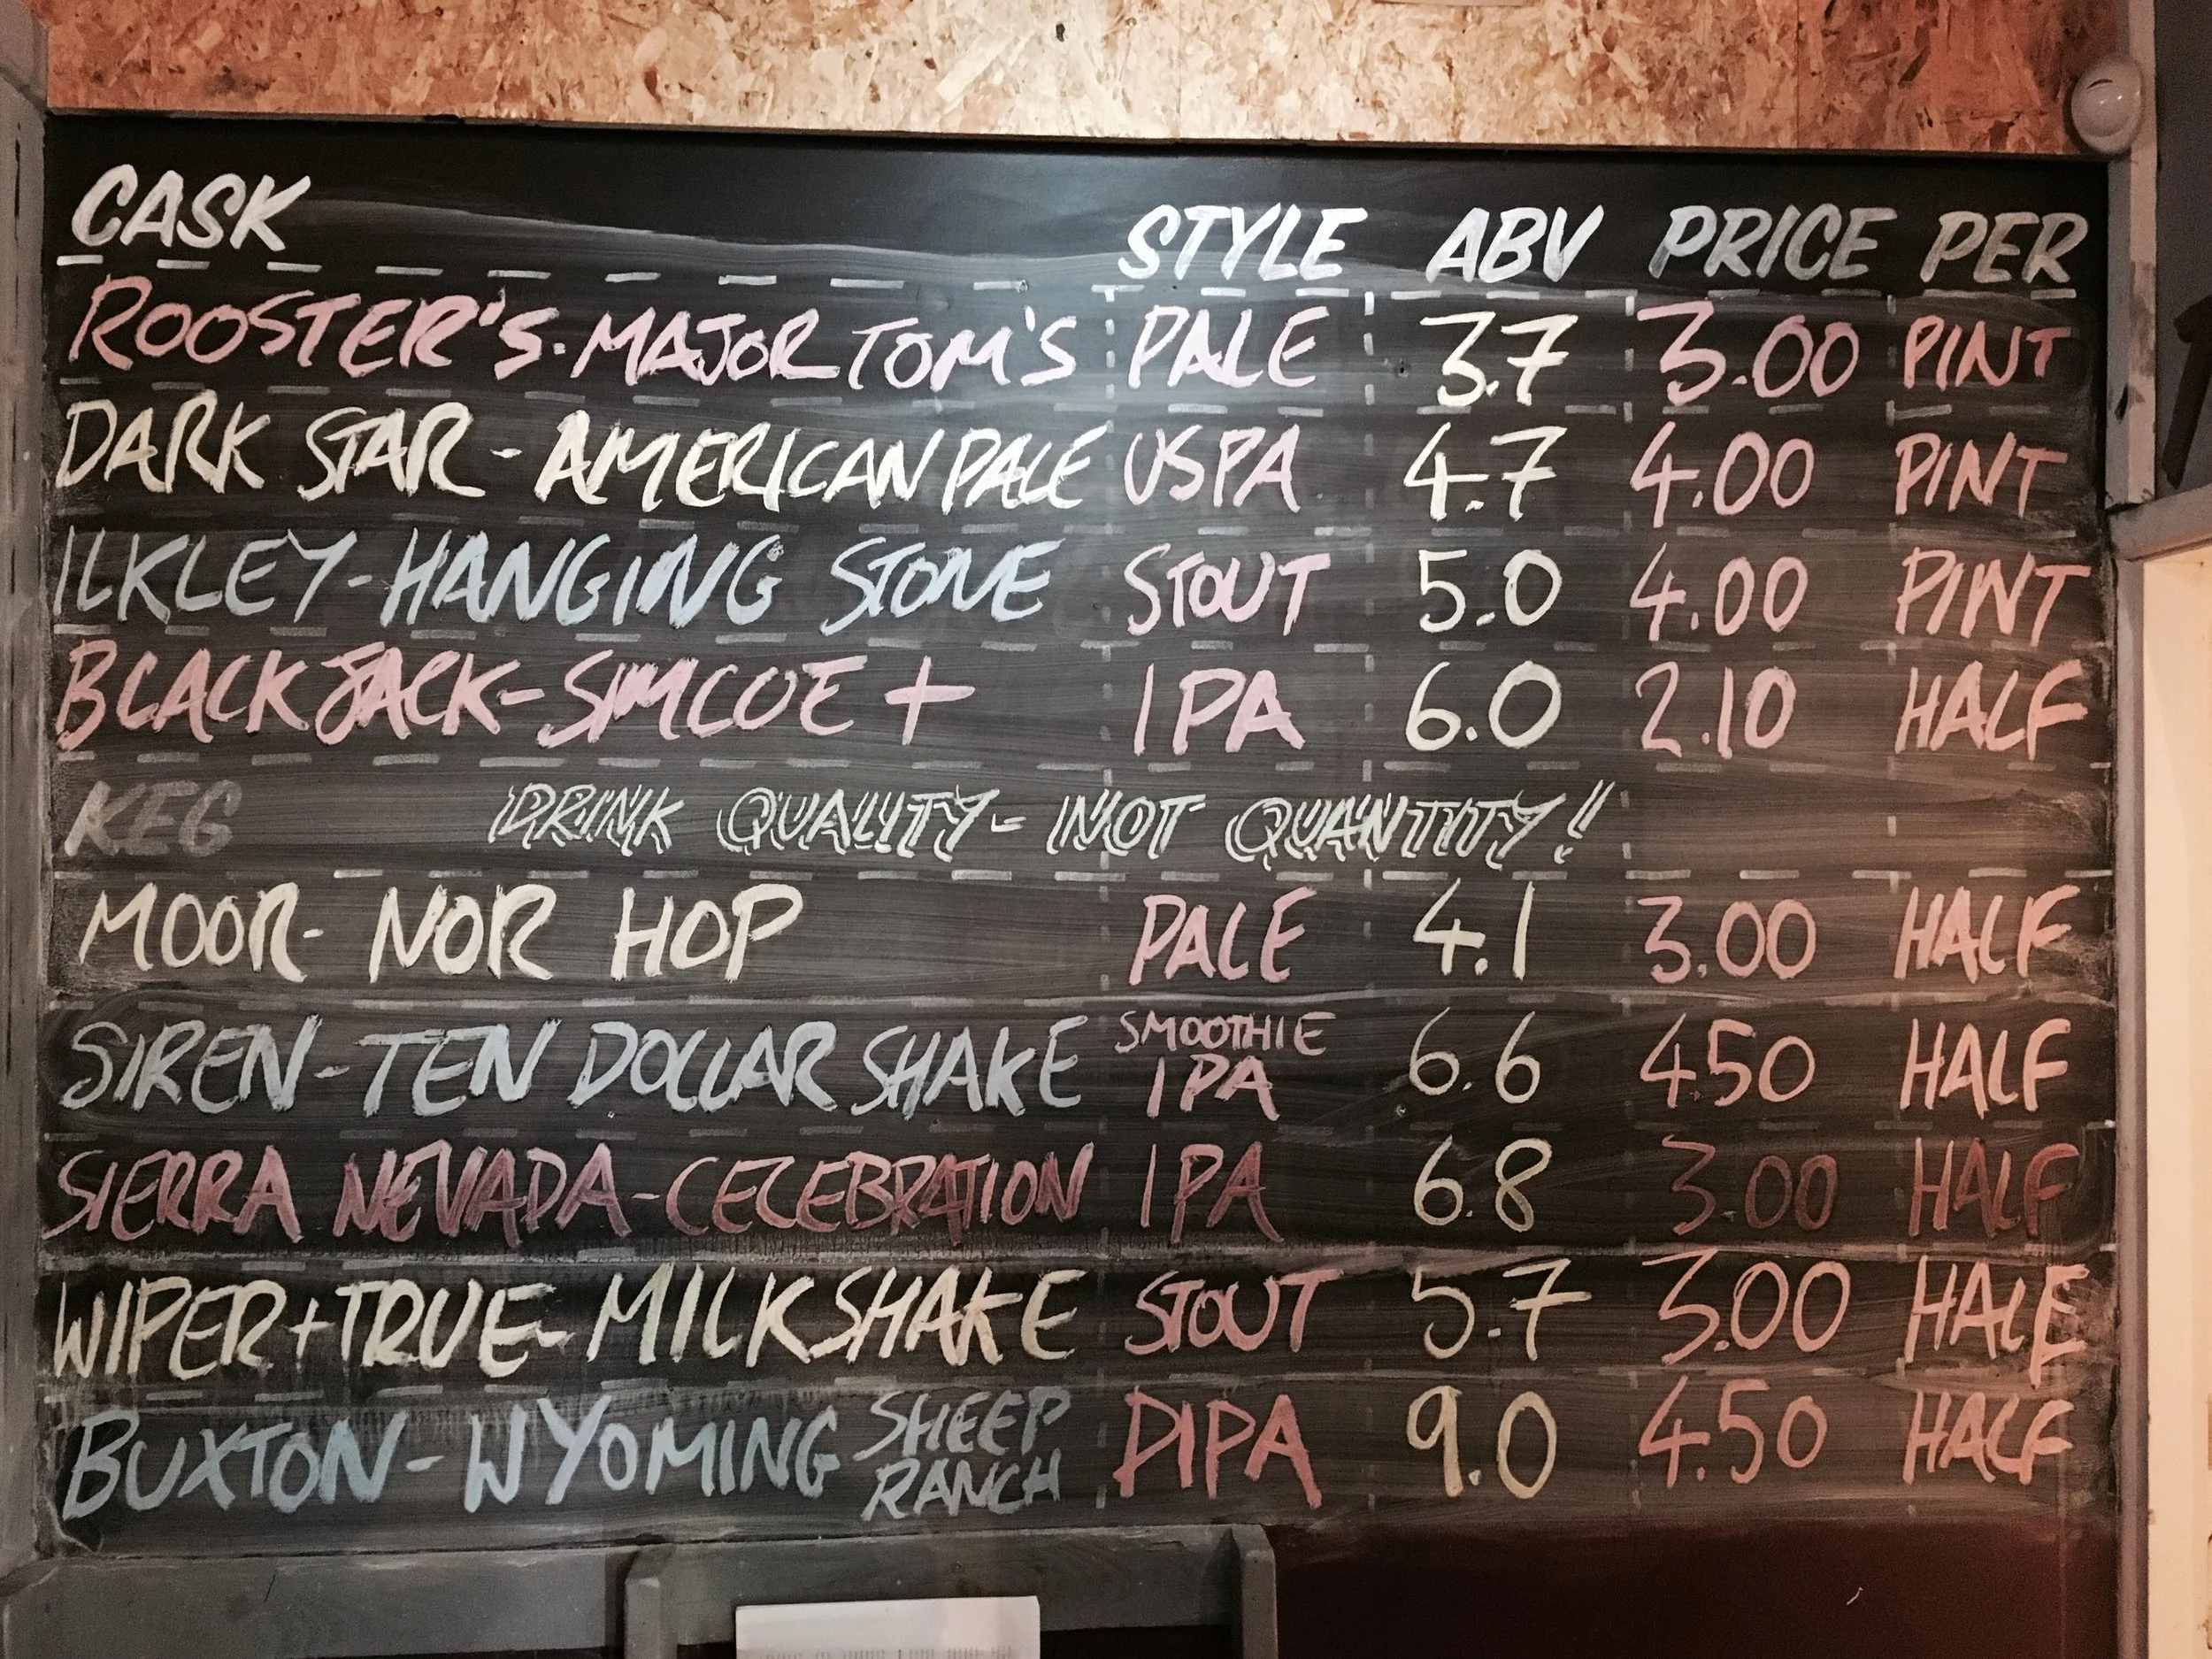 CASK STYLE ABV PRICE PER
ROOSTER'S. MAJOR TOM'S PALE 3.7 3.00 PINT
DARK STAR - AMERICAN PALE USPA 4.7 4.00 PINT
ILKLEY - HANGING STONE STOUT 5.0 4.00 PINT
BLACKJACK - SIMCOE + IPA 6.0 2.10 HALF
KEG DRINK QUALITY - NOT QUANTITY!
MOOR - NOR HOP PALE 4.1 3.00 HALF
SIREN - TEN DOLLAR SHAKE SMOOTHIE IPA 6.6 4.50 HALF
SIERRA NEVADA - CELEBRATION IPA 6.8 3.00 HALF
WIPER + TRUE - MILKSHAKE STOUT 5.7 3.00 HALF
BUXTON - WYOMING SHEEP RANCH DIPA 9.0 4.50 HALF